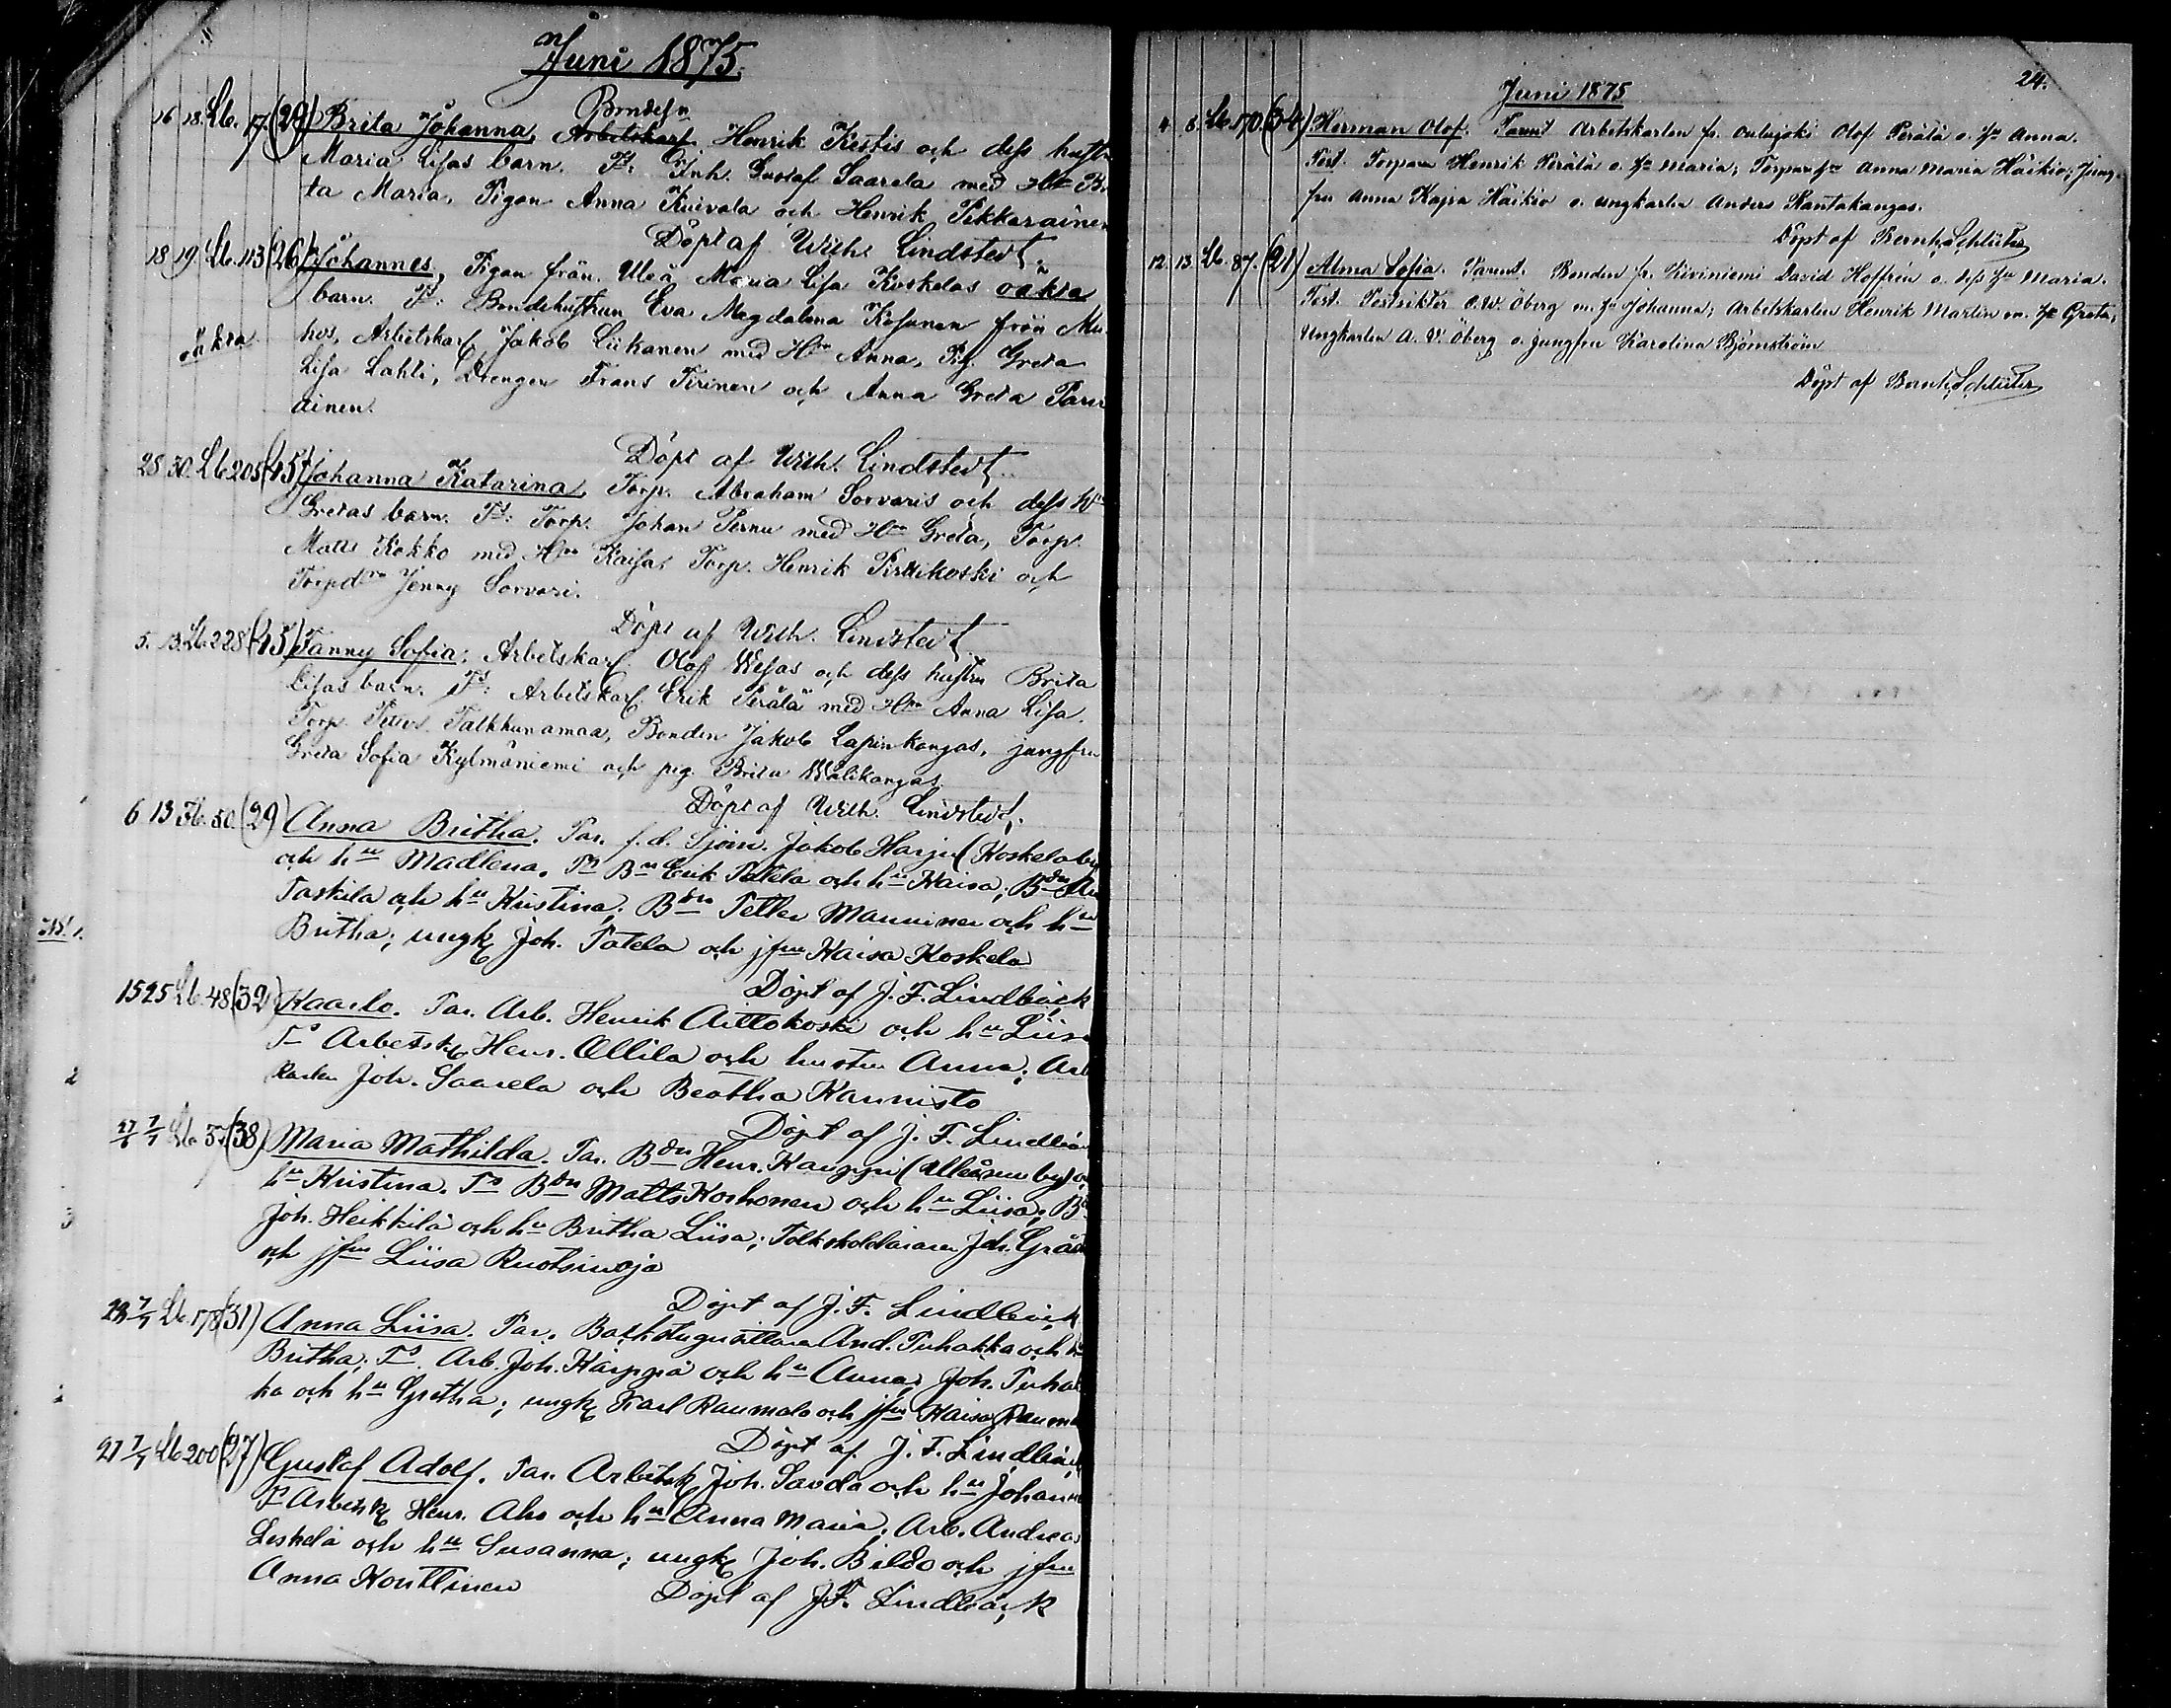 Juni 1875.
Bondesn
16 18. Lb. 17. (29) Brita Johanna, Arbetskarl Henrik Kestis och dess hustru
Maria Lisas barn. Ts: Inh. Gustaf Saarela med Hn Bri
ta Maria, Pigan Anna Kuivala och Henrik Pikkarainen
Döpt af Wilh. Lindstedt.
18 19 Lb. 113 (26) Johannes, Pigan från Uleå Maria Lisa Koskelas oäkta
barn. Ts: Bondehustrun Eva Magdalena Kosunen från Mu
oäkta
hos, Arbetskarl Jakob Liikanen med Hn Anna, Pig. Greta
Lisa Lahti, Drengen Frans Tirinen och Anna Greta Parvi
ainen.
Döpt af Wilh. Lindstedt.
28 30. Lb 205 (45) Johanna Katarina, Torp. Abraham Sorvaris och dess H
Gretas barn. Ts: Torp. Johan Pernu med Hn Greta, Torp.
Matts Kokko med Hn Kaisa, Torp. Henrik Pirttikoski och
Torpd Jenny Sorvari.
Döpt af Wilh. Lindstedt
5. 13. Lb. 228 (45) Fanny Sofia, Arbetskarl Olof Wesas och dess hustru Brita
Lisas barn. Ts: Arbetskarl Erik Perälä med Hn Anna Lisa.
Torp. Petter Talkkunamaa, Bonden Jakob Lapinkangas, jungfru
Greta Sofia Kylmäniemi och pig. Brita Wälikangas
Döpt af Wilh. Lindstedt.
6 13 Lb. 50. (29) Anna Britha. Par. f.d. Sjöm. Jakob Harju (Koskela by
och hu Madlena. Ts Bn Erik Patela och hu Kaisa; Bdn
Taskila och hu Kristina; Bdn Petter Manninen och hu
Britha; ungk Joh. Patela och jfru Kaisa Koskela
Döpt af J. F. Lindbäck
15 25 Lb. 48 (32) Kaarlo. Par. Arb. Henrik Aittokoski och hu Liisa
Ts Arbetsk Henr. Ollila och hustru Anna; Arb
karlen Joh. Saarela och Beatha Kannisto
Döpt af J. F. Lindbäck
27/6 7/7 Lb. 37 (38) Maria Mathilda. Par. Bdn Henr. Kauppi (Alleåsuu by) o
hu Kristina. Ts Bdn Matts Korhonen och hu Liisa; Bd
Joh. Heikkilä och hu Britha Liisa; Folkskolläraren Joh. Grå
och jfru Liisa Ruotsinoja
Döpt af J. F. Lindbäck
7/7 Lb. 178 (31) Anna Liisa. Par. Backstugusittaren And. Tuhakka och hu
Britha; Ts. Arb. Joh. Kärppä och hu Anna; Joh. Tuhak
ka och hu Gretha; ungk Karl Raumala och jfru Kaisa Rauma
Döpt af J. F. Lindbäck
27 7/7 Lb 200 (27) Gustaf Adolf. Par. Arbetsk Joh. Savela och hu Johanna
Ts Arbetsk Henr. Aho och hu Anna Maria; Arb. Andreas
Leskelä och hu Susanna; ungk Joh. Bildo och jfru
Anna Konttinen
Döpt af J. F. Lindbäck
24.
Juni 1875
4 8 Lb. 170. (34) Herman Olof. Parent Arbetskarlen fr. Oulujoki Olof Perälä o. hu Anna.
Test. Torparen Henrik Perälä o. hu Maria; Torpar hu Anna Maria Häikiö; Jung-
fru Anna Kajsa Häikiö o. ungkarlen Anders Rantakangas.
Döpt af Bernh. Schlüter
12. 13. Lb. 87. (21) Alma Sofia. Parent. Bonden fr. Kiviniemi David Hoffrén o. dess hu Maria.
Test. O. W. Öberg m. hu Johanna; Arbetskarlen Henrik Martin m. hu Greta;
Ungkarlen A. V. Öberg o. jungfru Karolina Björnström
Döpt af Bernh. Schlüter